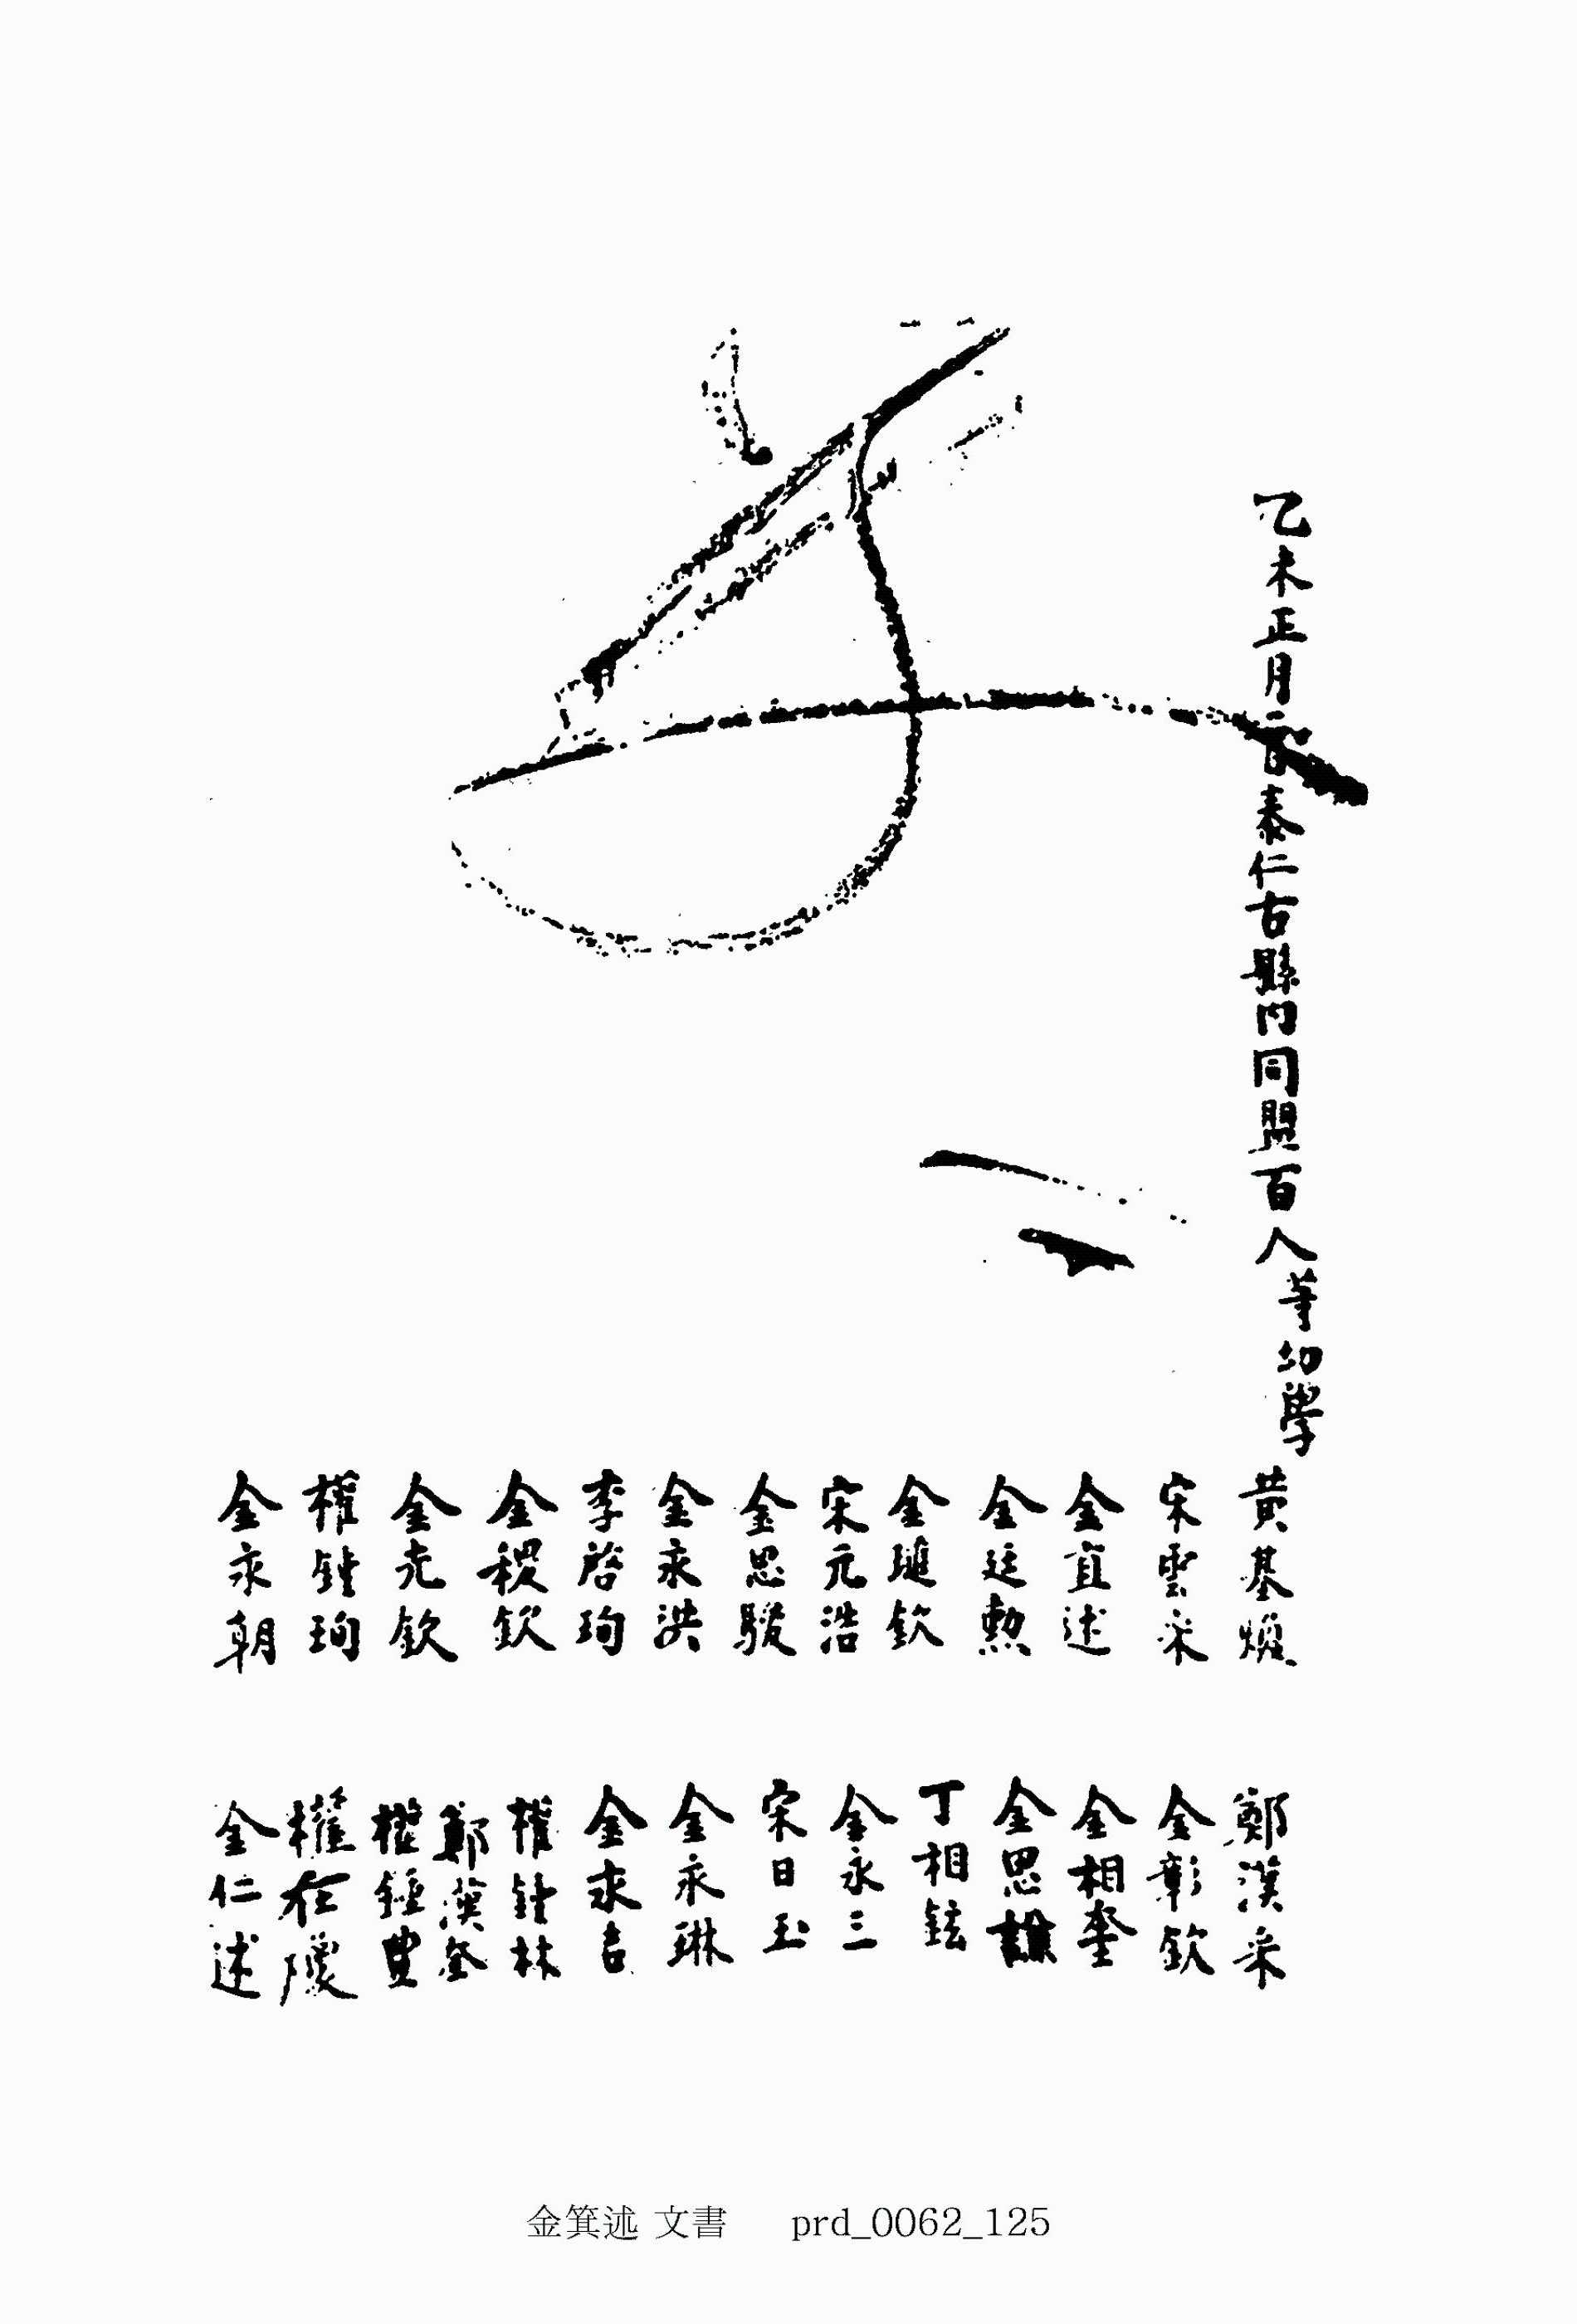 乙未正月 日泰仁古縣內同盟百人等幼學
黃基煥 鄭漢采
宋雲采 金彰欽
金直述 金相奎
金廷勳 金思謙
金璡欽 丁相鉉
宋元浩 金永三
金思駿 宋日玉
金永洪 金永琳
李啓珣 金永吉
金稷欽 權鍾林
金光欽 鄭漢奎
權鍾珣 權鍾
金永朝 權在
金仁述
金箕述 文書 prd_0062_125